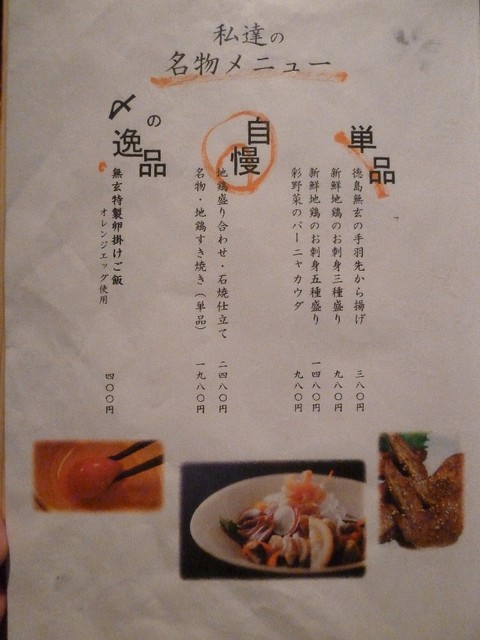 私達の
名物メニュー
単品
徳島無玄の手羽先から揚げ 三八〇円
新鮮地鶏のお刺身三種盛り 九八〇円
新鮮地鶏のお刺身五種盛り 一四八〇円
彩野菜のバーニャカウダ 九八〇円
自慢
地鶏盛り合わせ・石焼仕立て 二四八〇円
名物・地鶏すき焼き(単品) 一九八〇円
〆の逸品
無玄特製卵掛けご飯 四〇〇円
オレンジエッグ使用